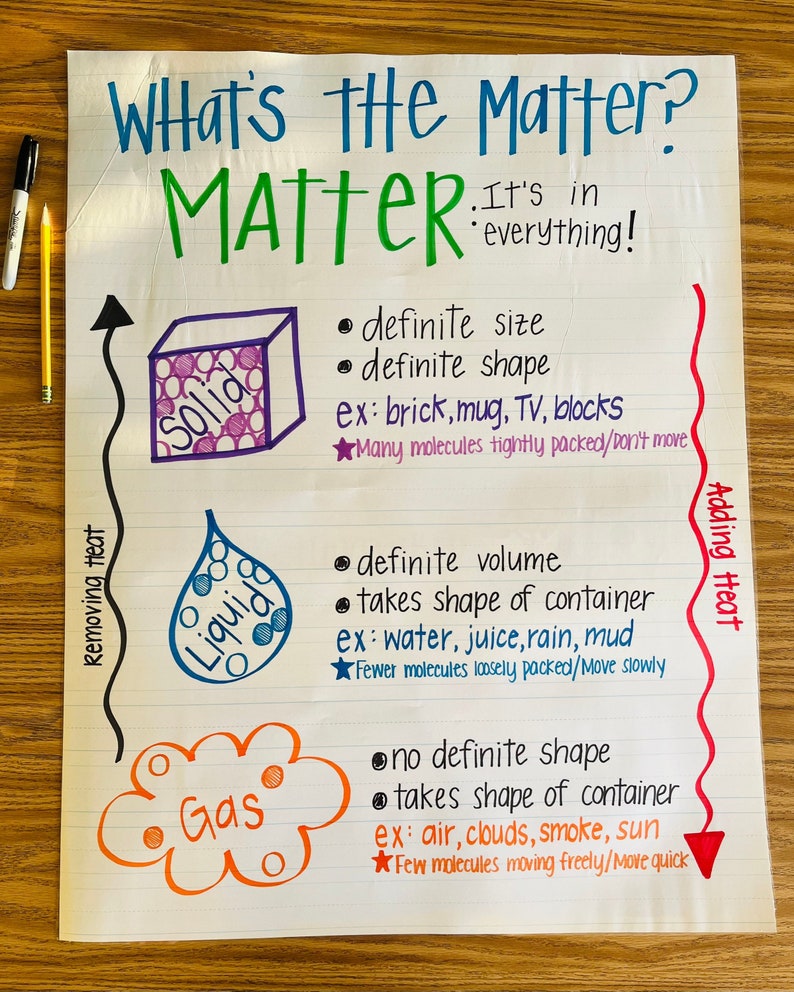 What's the Matter?
MATTER: It's in
everything!
Solid
• definite size
• definite shape
ex: brick, mug, TV, blocks
★Many molecules tightly packed/Don't move
Removing Heat
Adding Heat
Liquid
• definite volume
• takes shape of container
ex: water, juice, rain, mud
★Fewer molecules loosely packed/Move slowly
Gas
• no definite shape
• takes shape of container
ex: air, clouds, smoke, sun
★Few molecules moving freely/Move quick
Sharpie